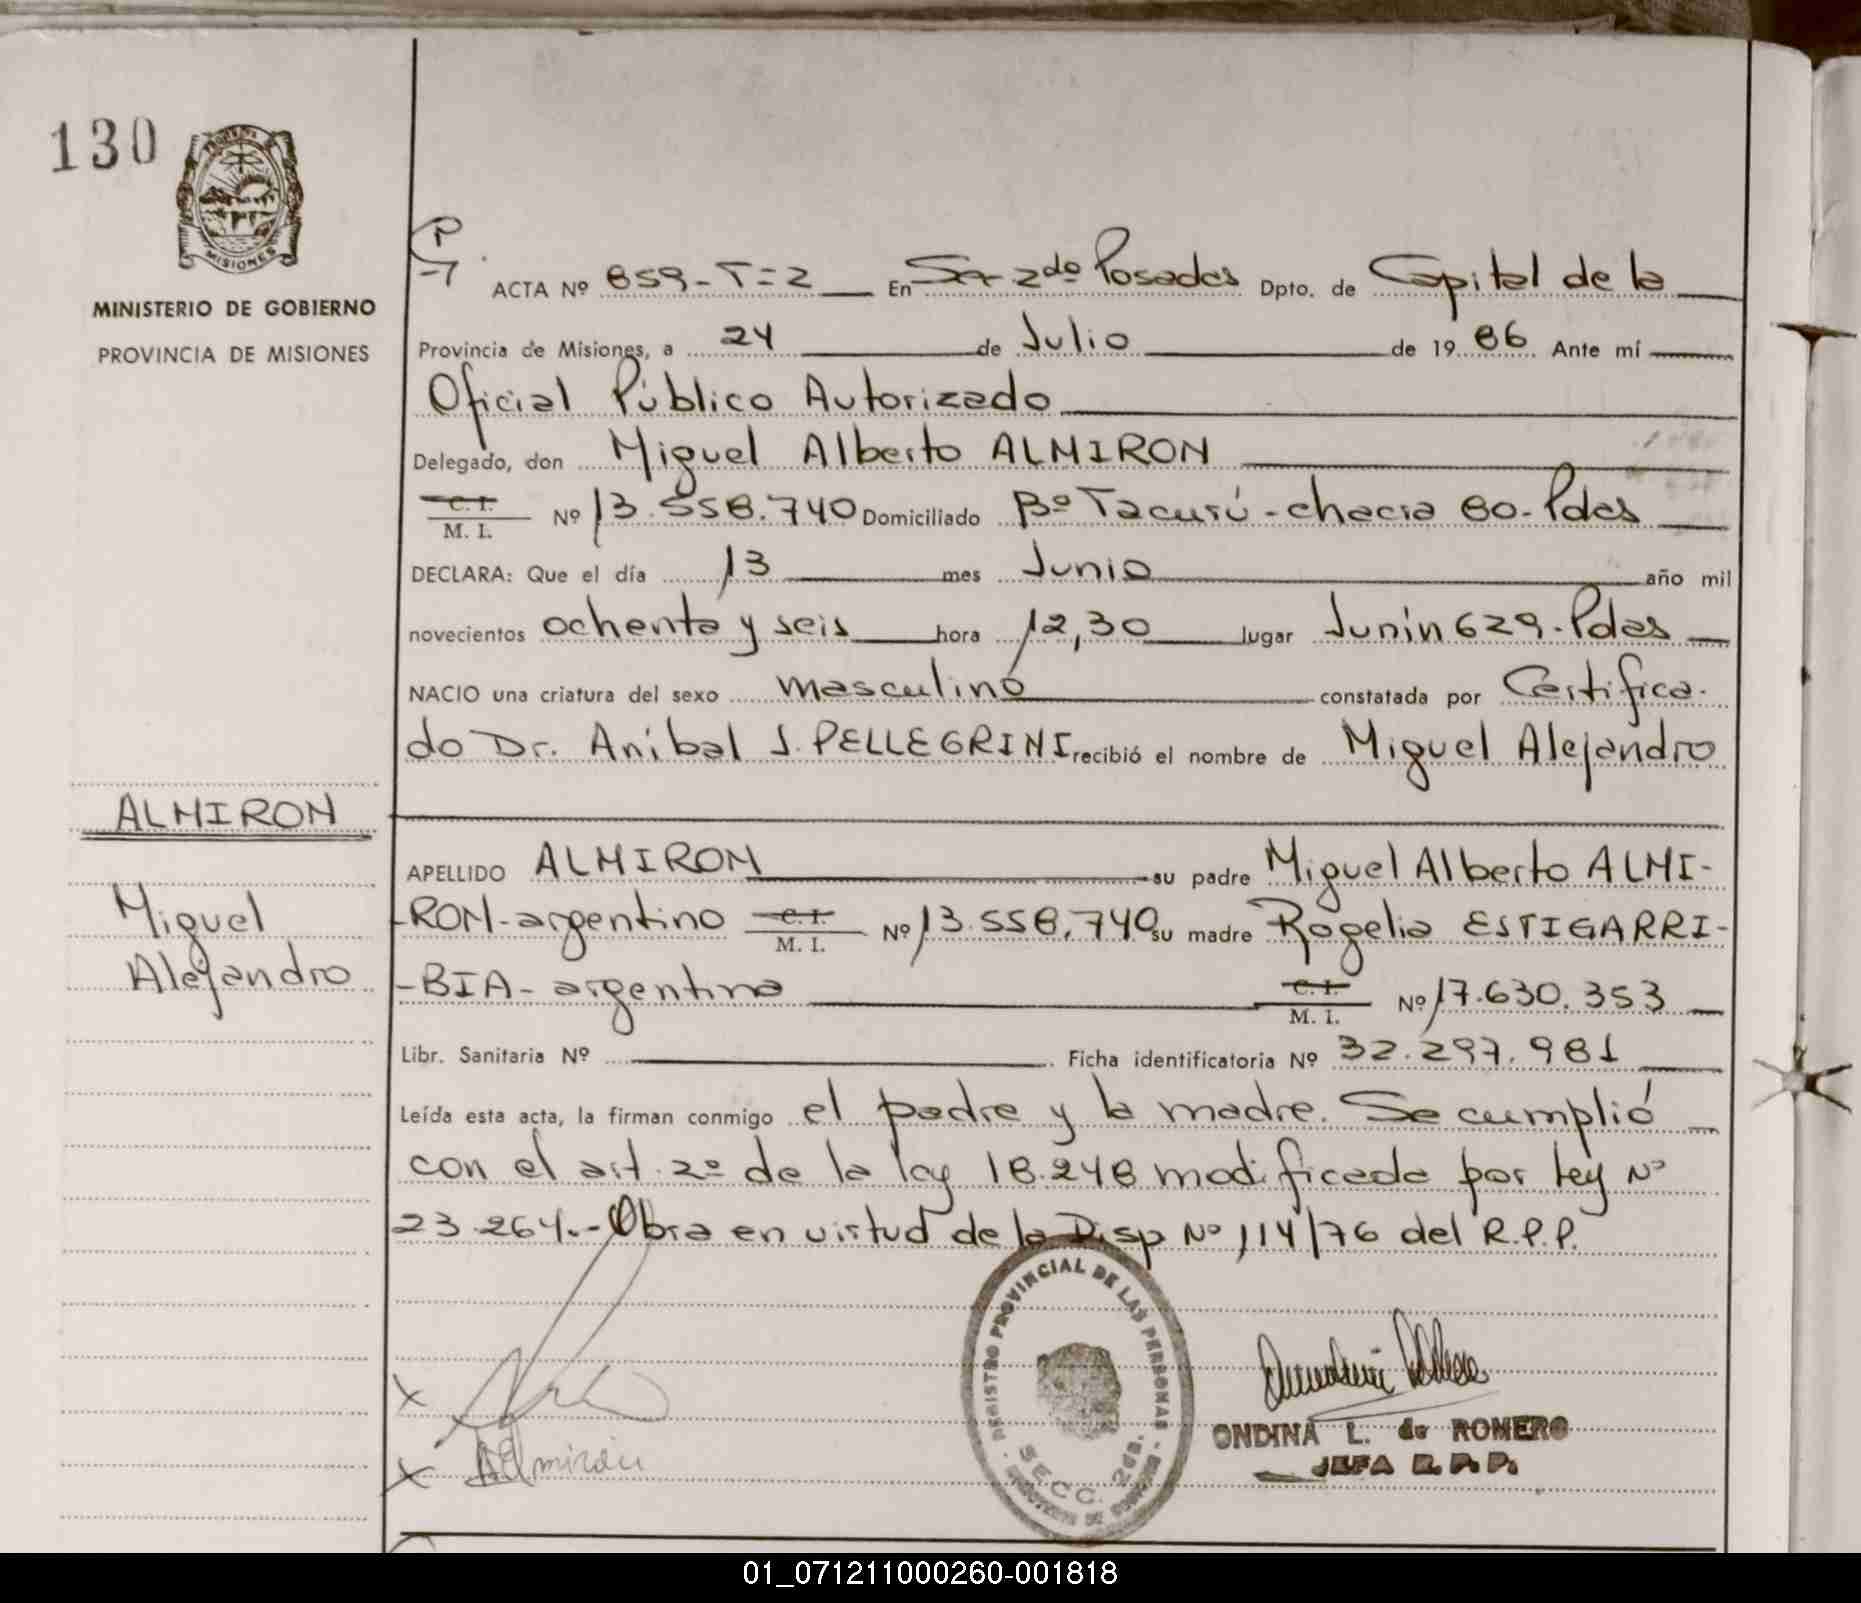 130
MISIONES
MINISTERIO DE GOBIERNO
PROVINCIA DE MISIONES
ALMIRON
Miguel
Alejandro
ACTA Nº 859-T=2 En Sec 2do Posadas Dpto. de Capital de la
Provincia de Misiones, a 24 de Julio de 1986 Ante mí
Oficial Público Autorizado
Delegado, don Miguel Alberto ALMIRON
C. I.
M. I. Nº 13.558.740 Domiciliado Bº Tacurú-chacra 80-Pdas
DECLARA: Que el día 13 mes Junio año mil
novecientos ochenta y seis hora 12,30 lugar Junin 629-Pdas
NACIO una criatura del sexo masculino constatada por Certifica-
do Dr. Anibal J. PELLEGRINI recibió el nombre de Miguel Alejandro
APELLIDO ALMIRON su padre Miguel Alberto ALMI-
-RON-argentino C. I. / M. I. Nº 13.558.740 su madre Rogelia ESTIGARRI-
-BIA-argentina C. I. / M. I. Nº 17.630.353
Libr. Sanitaria Nº Ficha identificatoria Nº 32.297.981
Leída esta acta, la firman conmigo el padre y la madre. Se cumplió
con el art. 2º de la ley 18.248 modificada por Ley Nº
23.264.-Obra en virtud de la Disp Nº 114/76 del R.P.P.
REGISTRO PROVINCIAL DE LAS PERSONAS
SECC. 2da.
x
x Almirón
ONDINA L. de ROMERO
JEFA R.P.P.
01_071211000260-001818